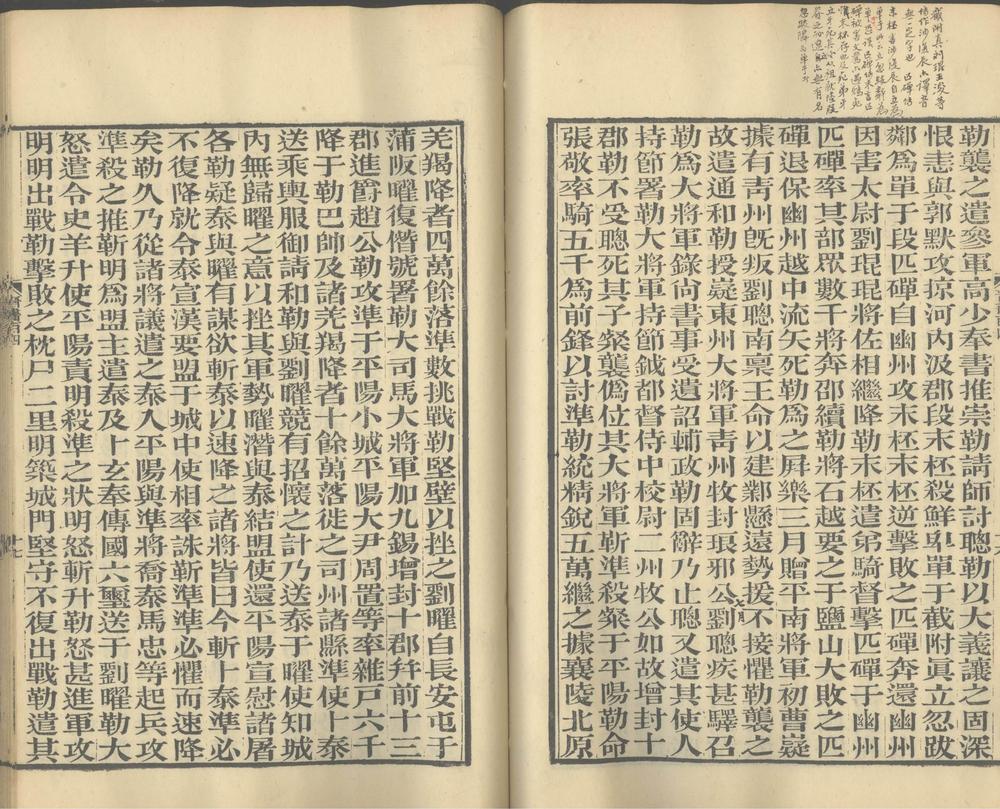 勒襲之遣參軍高少奉書推崇勒請師討聰勒以大義讓之固深
恨恚與郭默攻掠河內汲郡段末柸殺鮮卑單于截附眞立忽跋
鄰爲單于段匹磾自幽州攻末柸末柸逆擊敗之匹磾奔還幽州
因害太尉劉琨琨將佐相繼降勒末柸遣弟騎督擊匹磾于幽州
匹磾率其部眾數千將奔邵續勒將石越要之于鹽山大敗之匹
磾退保幽州越中流矢死勒爲之屏樂三月贈平南將軍初曹嶷
據有靑州旣叛劉聰南稟王命以建鄴懸遠勢援不接懼勒襲之
故遣通和勒授嶷東州大將軍靑州牧封琅邪公劉聰疾甚驛召
勒爲大將軍錄尙書事受遺詔輔政勒固辭乃止聰又遣其使人
持節署勒大將軍持節鉞都督侍中校尉二州牧公如故增封十
郡勒不受聰死其子粲襲僞位其大將軍靳準殺粲于平陽勒命
張敬率騎五千爲前鋒以討準勒統精銳五萬繼之據襄陵北原
羌羯降者四萬餘落準數挑戰勒堅壁以挫之劉曜自長安屯于
蒲阪曜復僭號署勒大司馬大將軍加九錫增封十郡幷前十三
郡進爵趙公勒攻準于平陽小城平陽大尹周置等率雜戶六千
降于勒巴帥及諸羌羯降者十餘萬落徙之司州諸縣準使卜泰
送乘輿服御請和勒與劉曜競有招懷之計乃送泰于曜使知城
內無歸曜之意以挫其軍勢曜潛與泰結盟使還平陽宣慰諸屠
各勒疑泰與曜有謀欲斬泰以速降之諸將皆曰今斬卜泰準必
不復降就令泰宣漢要盟于城中使相率誅靳準準必懼而速降
矣勒久乃從諸將議遣之泰入平陽與準將喬泰馬忠等起兵攻
準殺之推靳明爲盟主遣泰及卜玄奉傳國六璽送于劉曜勒大
怒遣令史羊升使平陽責明殺準之狀明怒斬升勒怒甚進軍攻
明明出戰勒擊敗之枕尸二里明築城門堅守不復出戰勒遣其